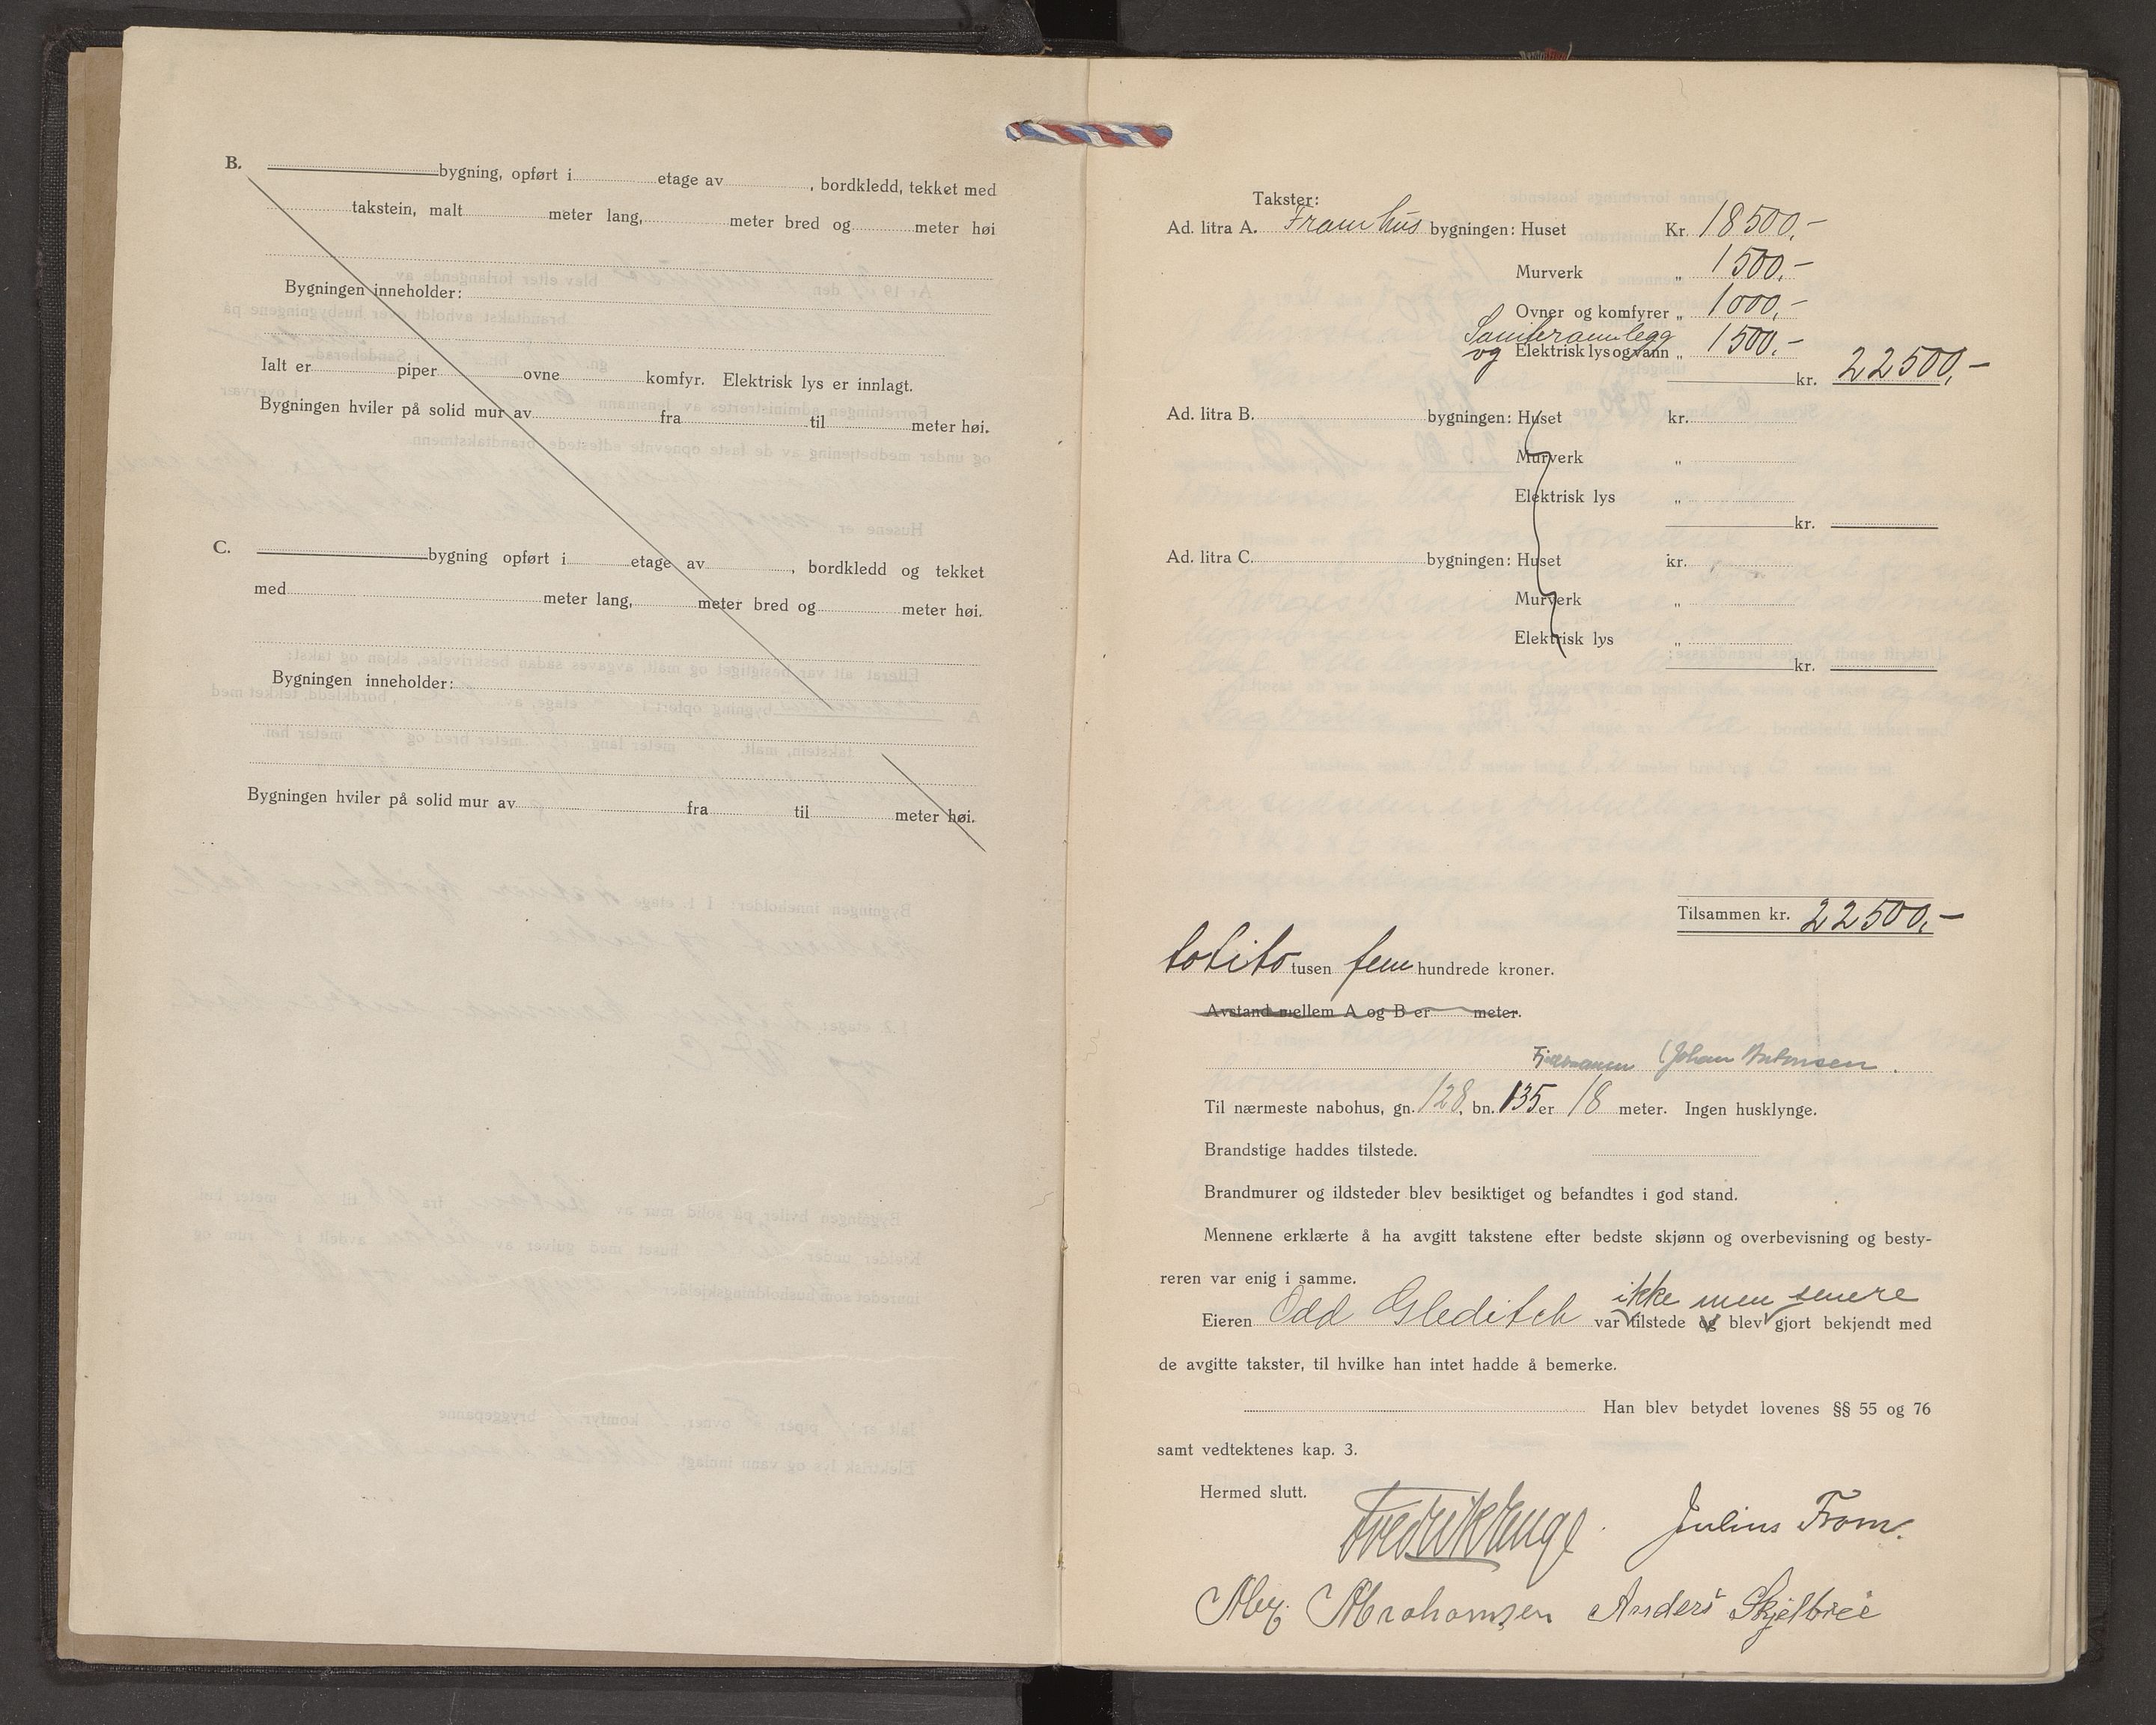 B. bygning, opført i etage av , bordkledd, tekket med
takstein, malt meter lang, meter bred og meter høi
Bygningen inneholder:
Ialt er piper ovne komfyr. Elektrisk lys er innlagt.
Bygningen hviler på solid mur av fra til meter høi.
C. bygning opført i etage av , bordkledd og tekket
med meter lang, meter bred og meter høi.
Bygningen inneholder:
Bygningen hviler på solid mur av fra til meter høi.
Takster:
Ad. litra A. Framhus bygningen: Huset Kr. 18500,-
Murverk „ 1500,-
Ovner og komfyrer „ 1000,-
Saniteranlegg
og Elektrisk lys og vann „ 1500.-
kr. 22500,-
Ad. litra B. bygningen: Huset kr.
Murverk „
Elektrisk lys „
kr.
Ad. litra C. bygningen: Huset kr.
Murverk „
Elektrisk lys „
kr.
Tilsammen kr. 22500,-
totito tusen fem hundrede kroner.
Avstand mellem A og B er meter.
(Johan Antonsen.
Til nærmeste nabohus, gn. 128, bn. 135 er 18 meter. Ingen husklynge.
Brandstige haddes tilstede.
Brandmurer og ildsteder blev besiktiget og befandtes i god stand.
Mennene erklærte å ha avgitt takstene efter bedste skjønn og overbevisning og besty-
reren var enig i samme.
ikke men senere
Eieren Odd Gleditch var tilstede og blev gjort bekjendt med
de avgitte takster, til hvilke han intet hadde å bemerke.
Han blev betydet lovenes §§ 55 og 76
samt vedtektenes kap. 3.
Hermed slutt.
Fredrik Enge. Julius From.
Alex. Abrahamsen Anders Skjelbrei